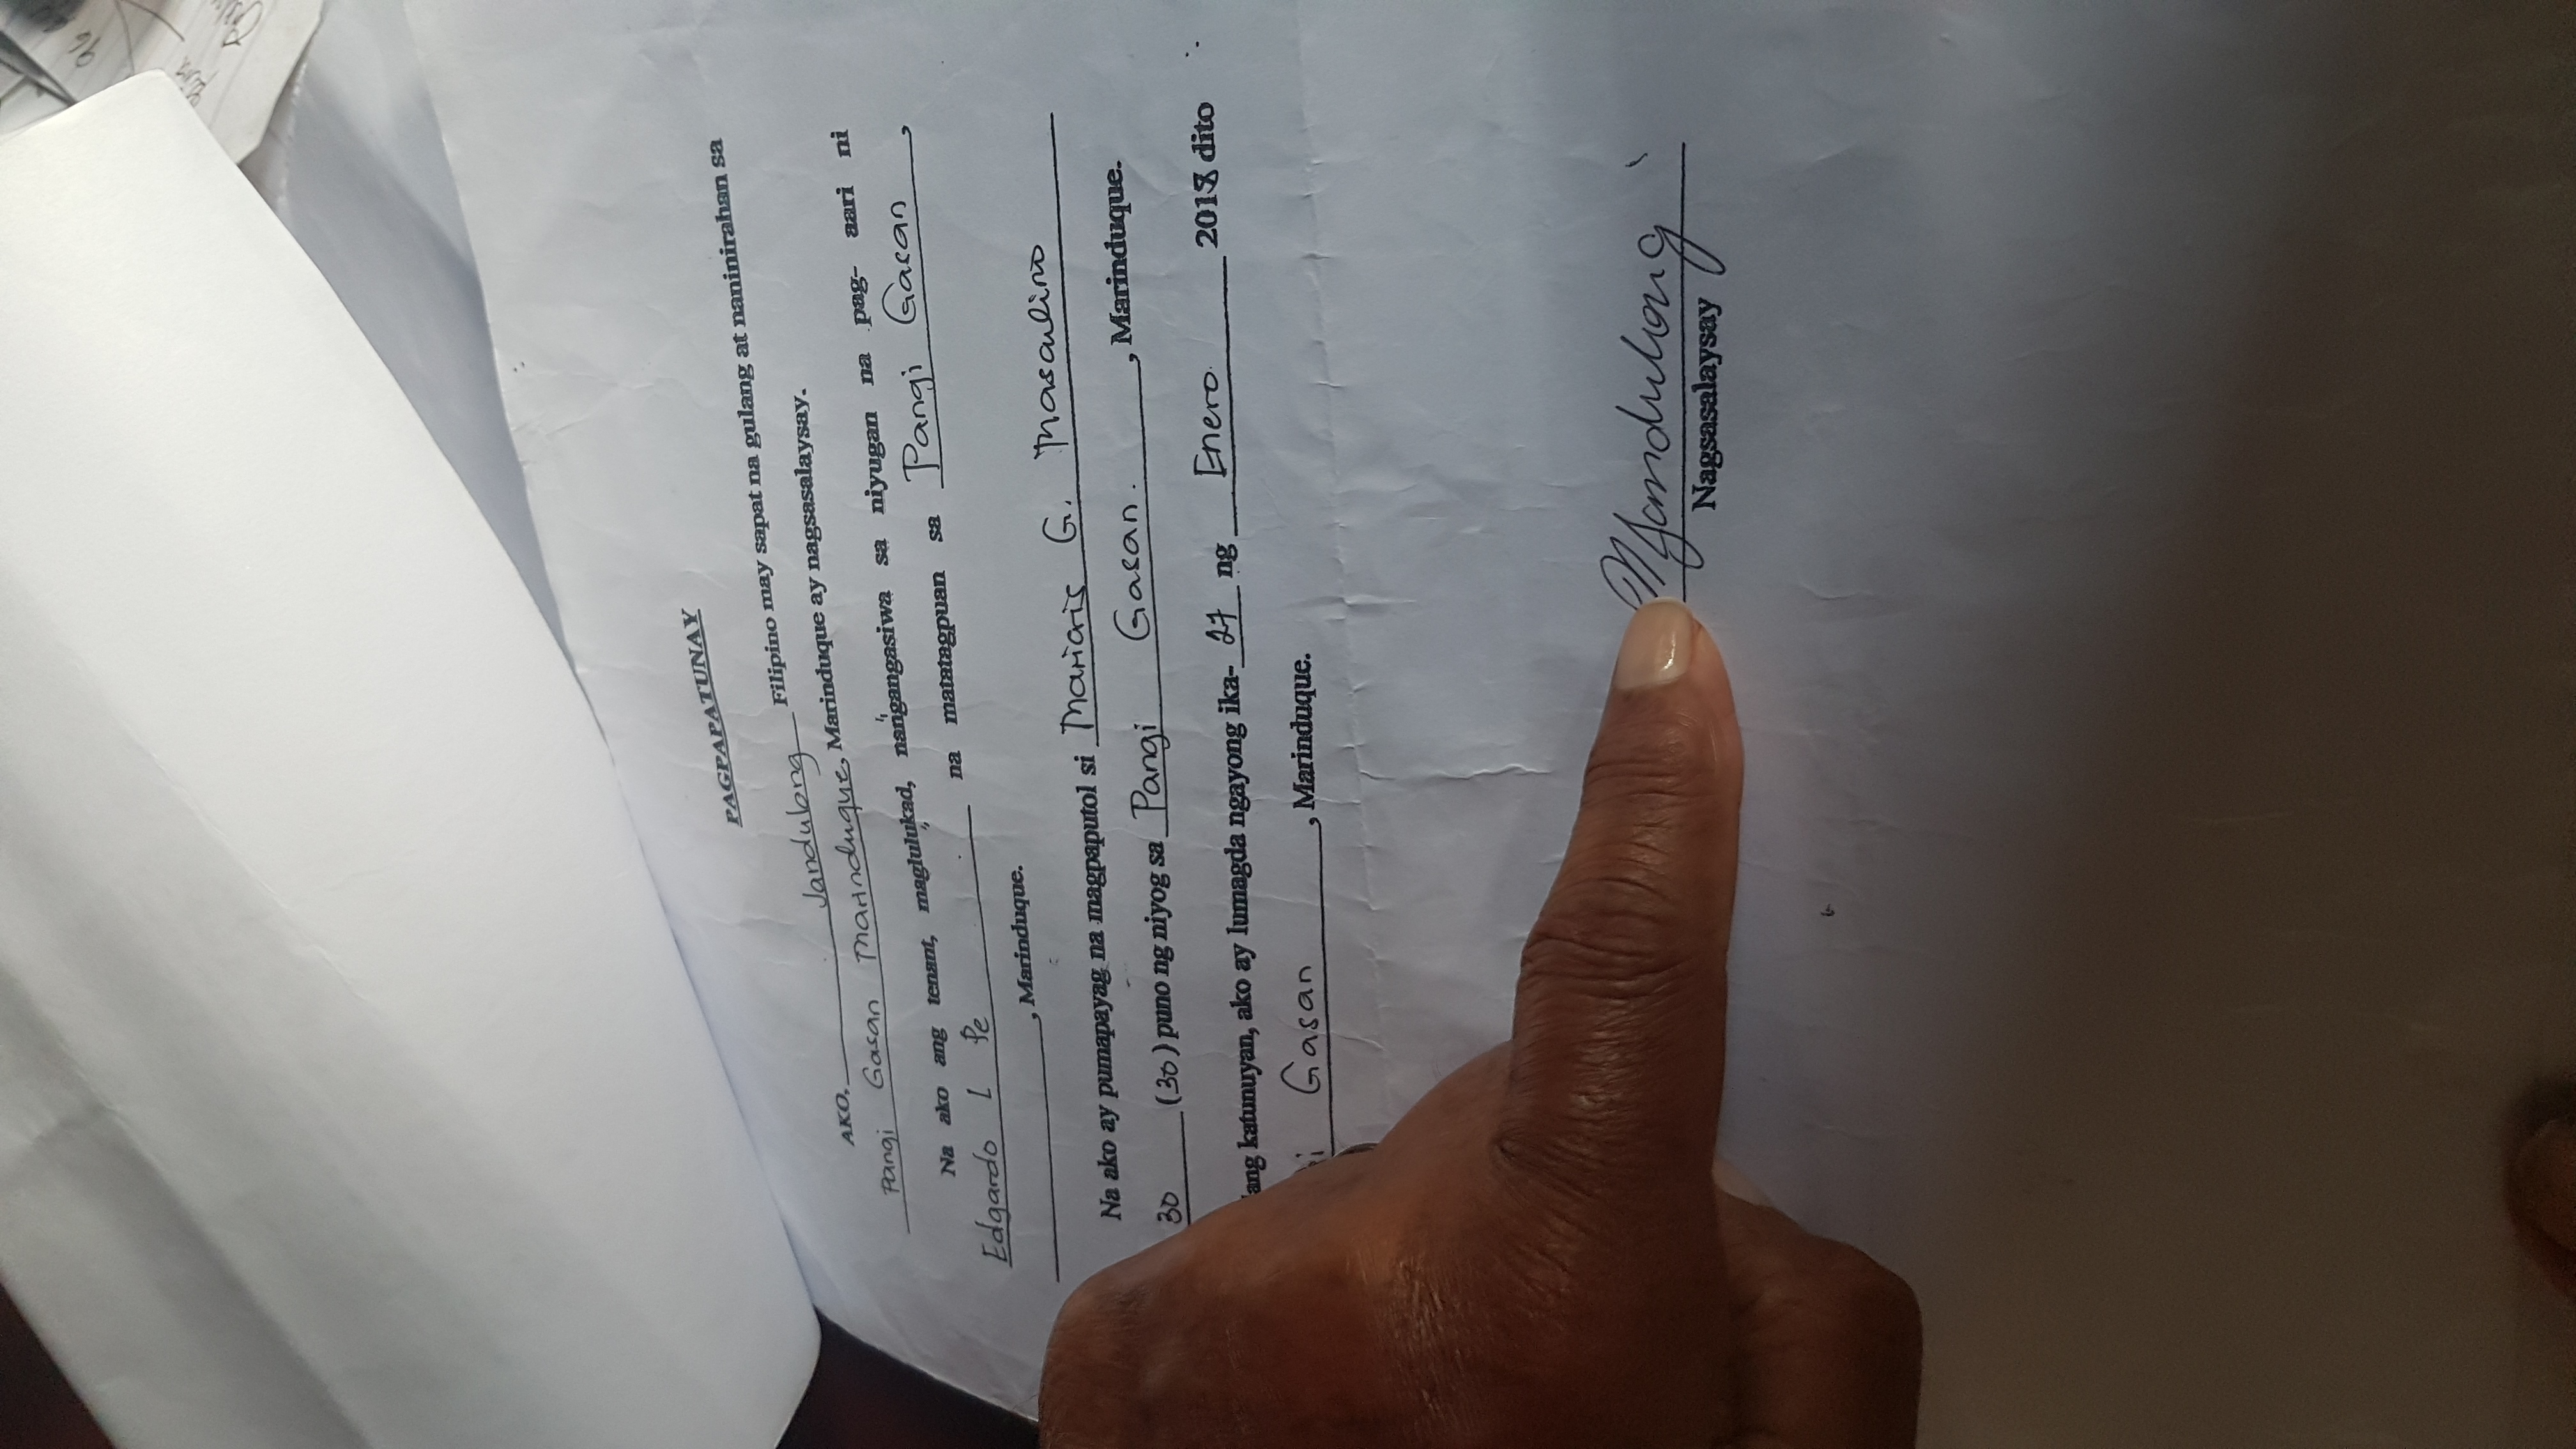 PAGPAPATUNAY
AKO, Jandulong Filipino may sapat na gulang at naninirahan sa
Pangi Gasan Marinduque, Marinduque ay nagsasalaysay.
Na ako ang tenant, maglulukad, nangangasiwa sa niyugan na pag- aari ni
Edgardo L Pe na matatagpuan sa Pangi Gasan,
, Marinduque.
Na ako ay pumapayag na magpaputol si Maricris G. Masculino
30 (30) puno ng niyog sa Pangi Gasan. , Marinduque.
ang katunuyan, ako ay lumagda ngayong ika- 27 ng Enero 2018 dito
i Gasan , Marinduque.
MJandulong
Nagsasalaysay
96